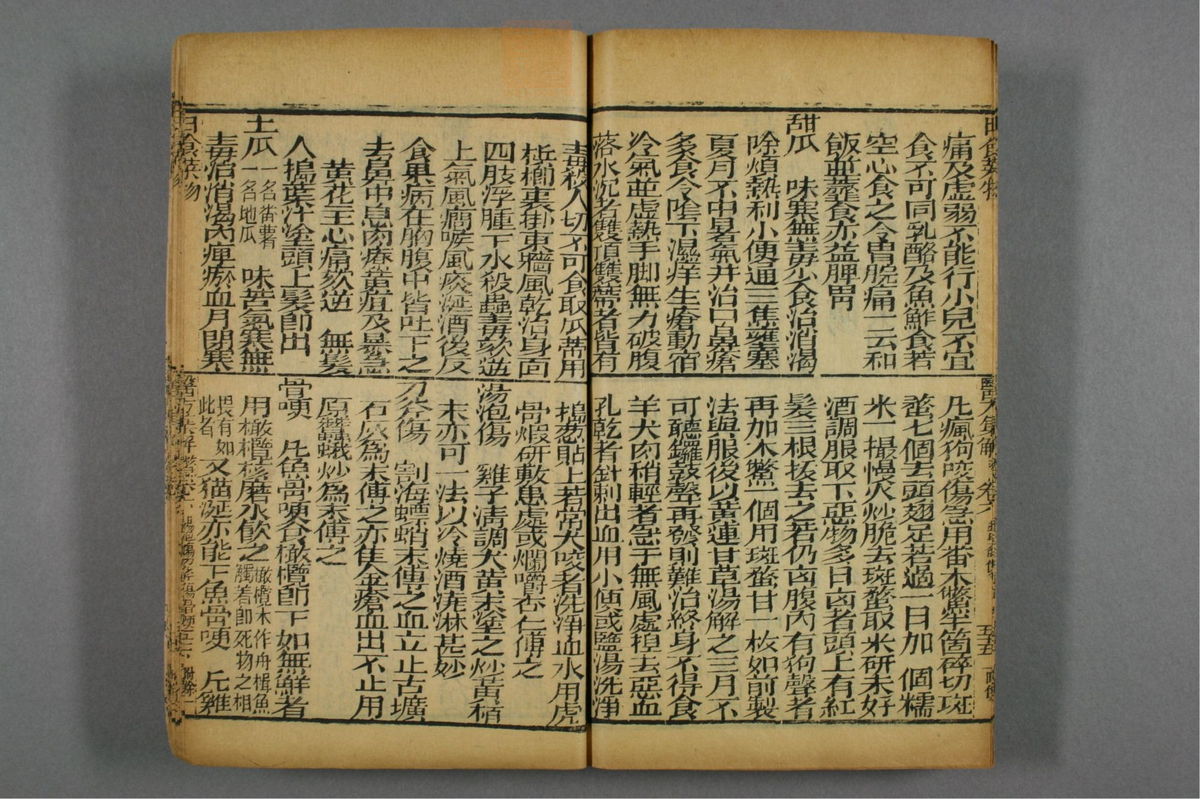 痛及虛弱不能行小兒不宜
食不可同乳酪及魚鮓食若
空心食之令胃脘痛一云和
飯並蒸食亦益脾胃
甜瓜　味寒無毒少食治消渴
除煩熱利小便通三焦壅塞
夏月不中暑氣并治口鼻瘡
多食令陰下濕痒生瘡動宿
冷氣並虛熱手脚無力破腹
落水沉者雙頂雙蒂者皆有
毒殺人切不可食取瓜蒂用
裹掛東牆風乾治身面
四肢浮腫下水殺蟲毒欬逆
上氣風癎喉風痰涎酒後反
食果病在胸腹中皆吐下之
去鼻中息肉療黃疸及暴急
黃花主心痛欬逆　無髮
人搗葉汁塗頭上髮即出
土瓜一名番薯一名地瓜　味苦氣寒無
毒治消渴內痺瘀血月閉寒
日食菜物
凡瘋狗咬傷急用番木鱉半箇碎切斑
蝥七個去頭翅足若過一日加一個糯
米一撮慢火炒脆去斑蝥取米研末好
酒調服取下惡物多日凶者頭上有紅
髮三根拔去之若仍凶腹內有狗聲者
再加木鱉一個用斑蝥廿一枚如前製
法與服後以黃連甘草湯解之三月不
可聽鑼鼓聲再發則難治終身不得食
羊犬肉稍輕者急于無風處捏去惡血
孔乾者針刺出血用小便或鹽湯洗淨
搗葱貼上若常犬咬者洗淨血水用虎
骨煅研敷患處或爛嚼杏仁傅之
湯泡傷　雞子清調大黃末塗之炒黃柏
末亦可一法以冷燒酒洗淋甚妙
刀斧傷　割海螵蛸末傅之血立止古壙
石灰為末傅之亦佳金瘡血出不止用
原蠶蛾炒為末傅之
骨哽　凡魚骨哽食橄欖即下如無鮮者
用橄欖核磨水飲之橄欖木作舟楫魚觸着即死物之相畏有如此者　又猫涎亦能下魚骨哽　凡雞